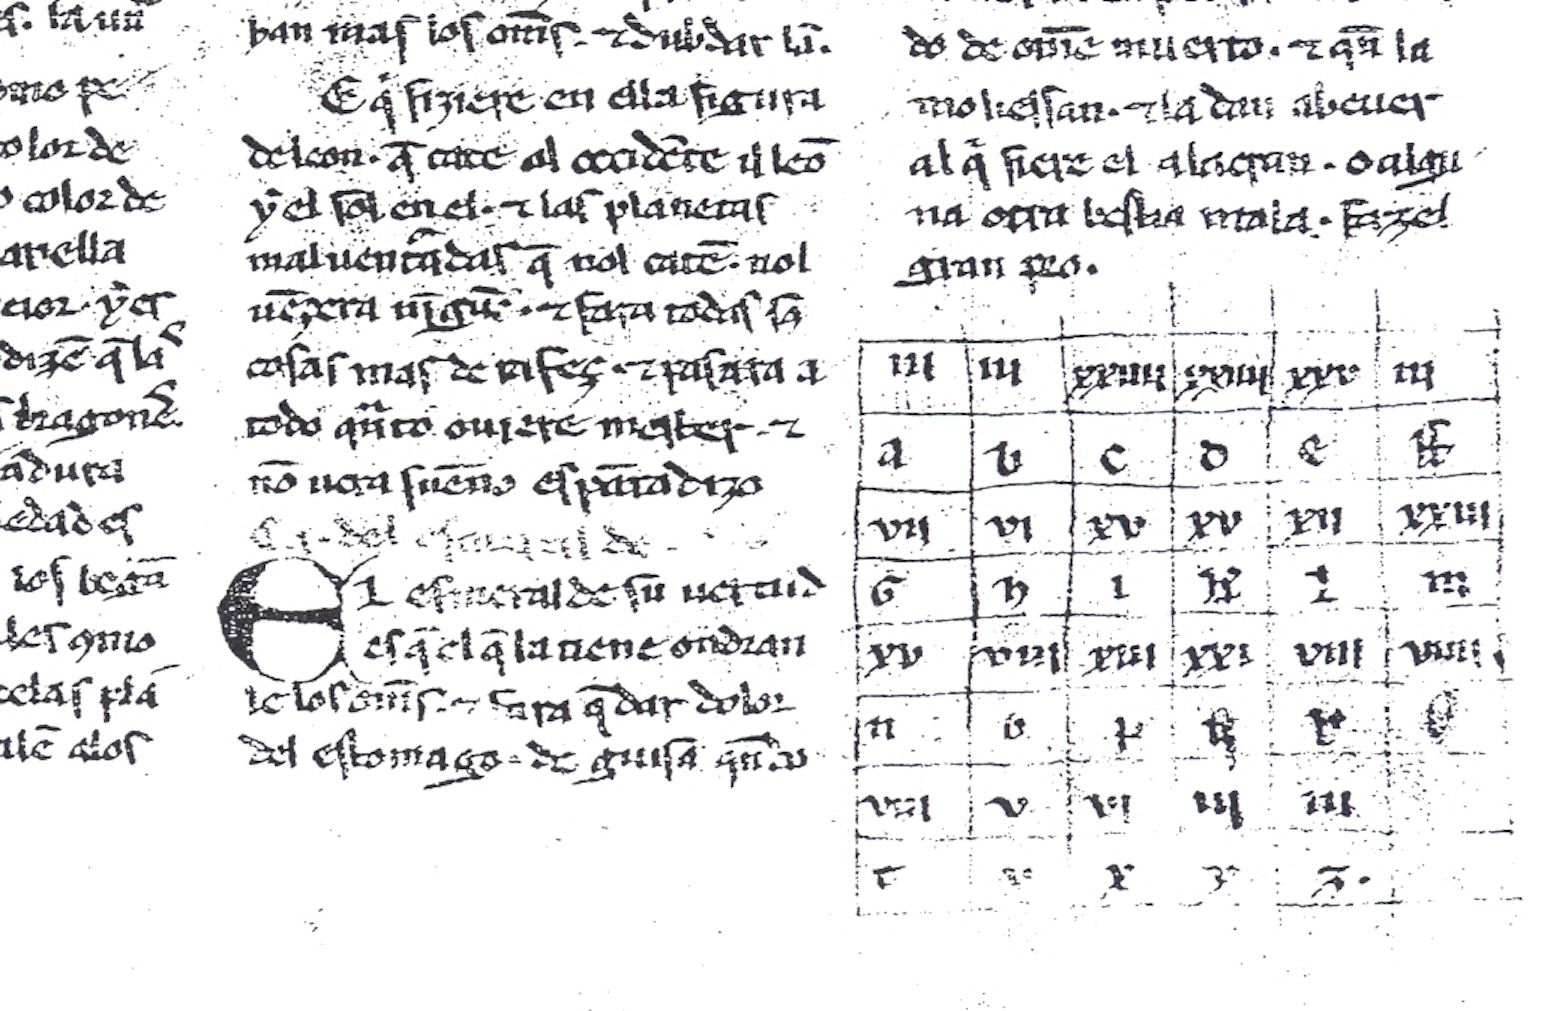 s. la uũ
omo pe
color de
o color de
arella
cior. ẏ es
dizẽ q̃ las
dragonẽs
adura
edad es
los begã
les 9mo
celas plã
alẽ alos
ban mas los om̃s. ⁊ dubdar lã.
E q̍ fiziere en ella figura
de leon. q̃ cate al occidẽte ⁊ el leõ
ẏ el sol en el. ⁊ las planetas
maluentadas q̃ nol catẽ. nol
uẽzera nĩguẽ. ⁊ fara todas sꝰ
cosas mas de rafez. ⁊ passara a
todo qñto ouiere mester. ⁊
nõ uera suẽno espãtadizo
del esmeralde
EL esmeralde su uertud
es q̃ el q̃ la tiene ondran
le los om̃s. ⁊ fara q̃dar dolor
del estomago. de guisa qñ
do de om̃e muerto. ⁊ qñ la
moliessan. ⁊ la dan abeuer
al q̍ fiere el alacran. o algu
na otra bestia mala. faz el
gran pro.
iii iii xxiiii xxiiii xxv iii
a b c d e
vii vi xv xv xii xxiii
G h i k l m
xv viii xiii xxi viii viiii
n o p q r
viii v vi iii iii
t x